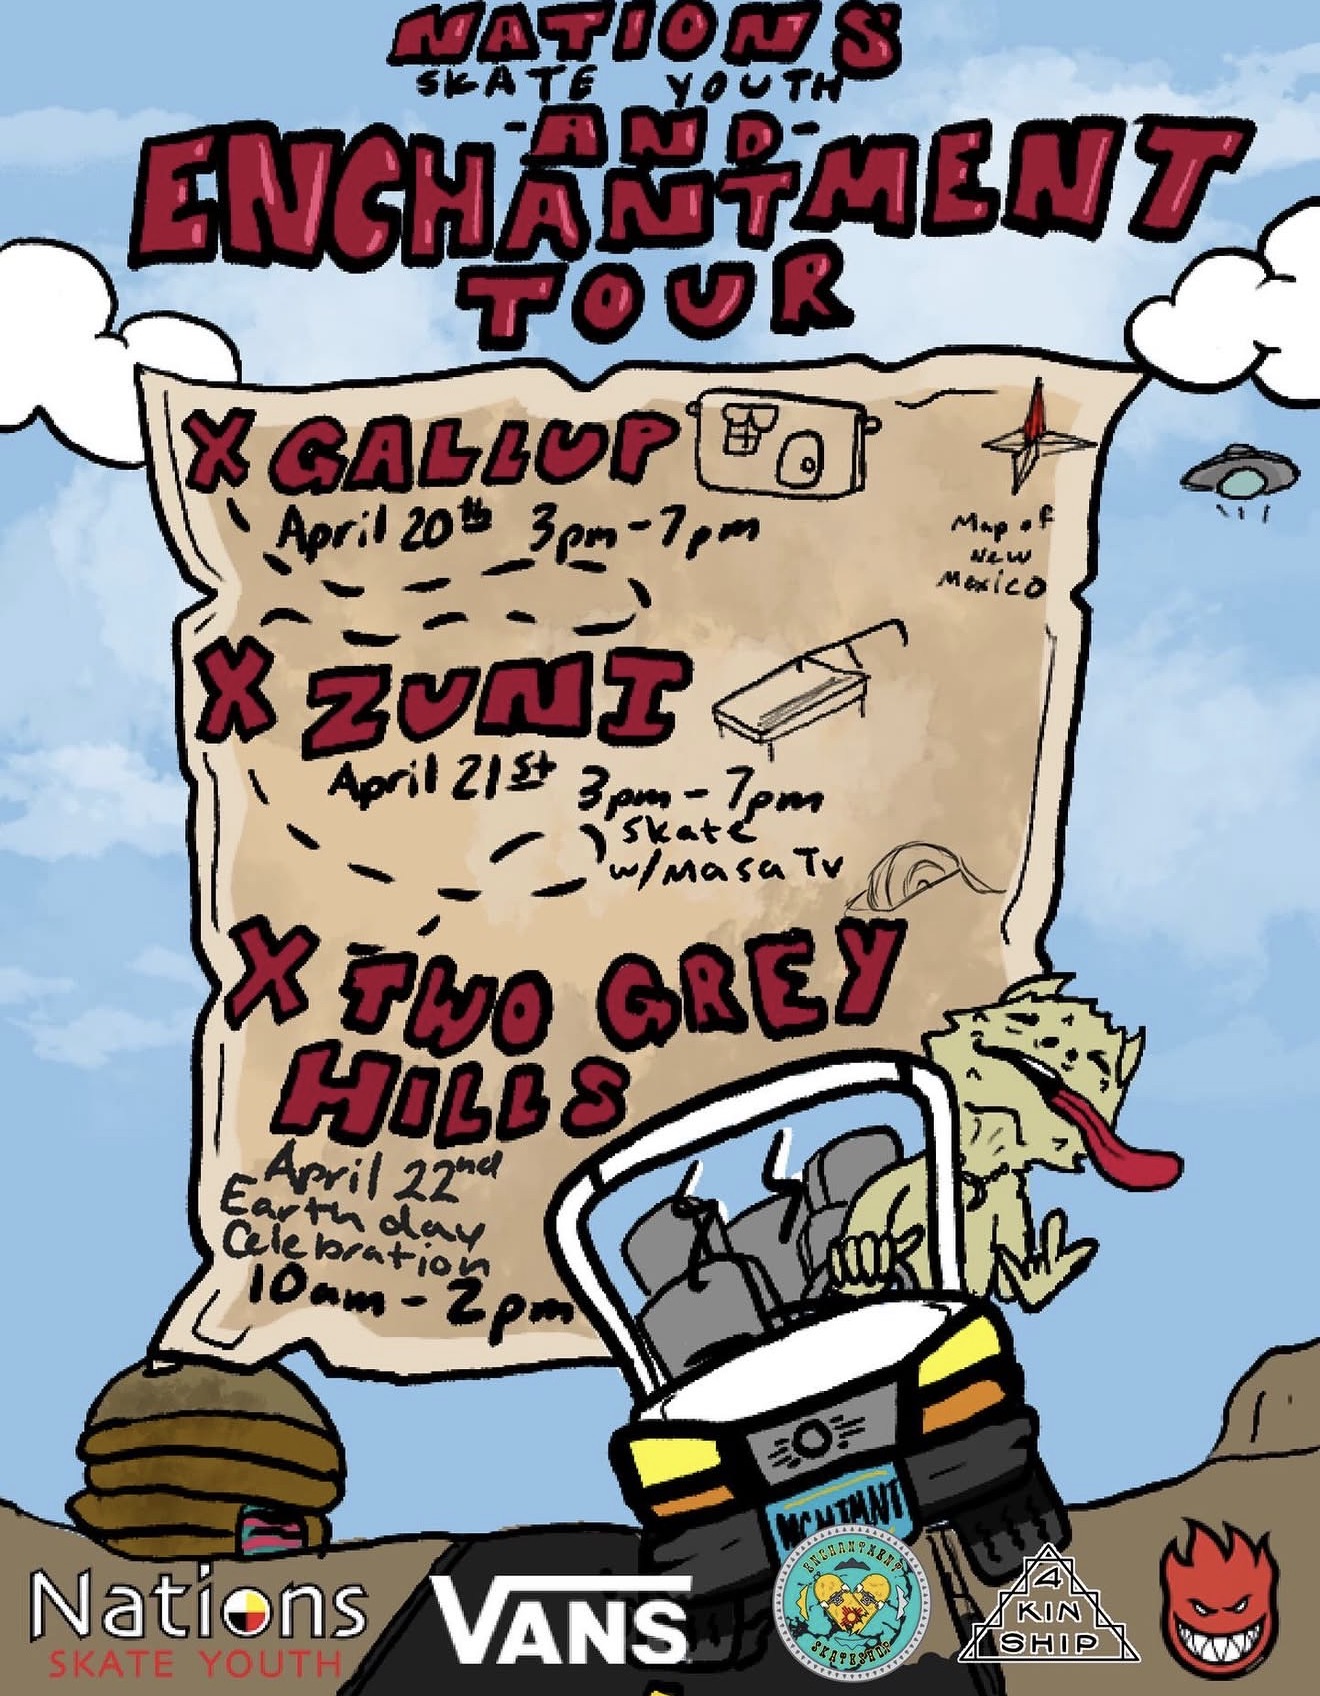 NATIONS
SKATE YOUTH
-AND-
ENCHANTMENT
TOUR
X GALLUP
April 20th 3pm-7pm
Map of
New
Mexico
X ZUNI
April 21st 3pm-7pm
Skate
w/Masa Tv
X TWO GREY
HILLS
April 22nd
Earth day
Celebration
10am-2pm
Nations
SKATE YOUTH
VANS
ENCHANTMENT
SKATESHOP
4
KIN
SHIP